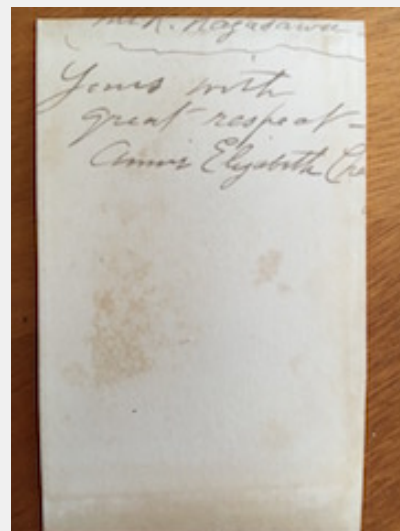 Mr K. Nagasawa
Yours with
great respect -
Annis Elizabeth Che